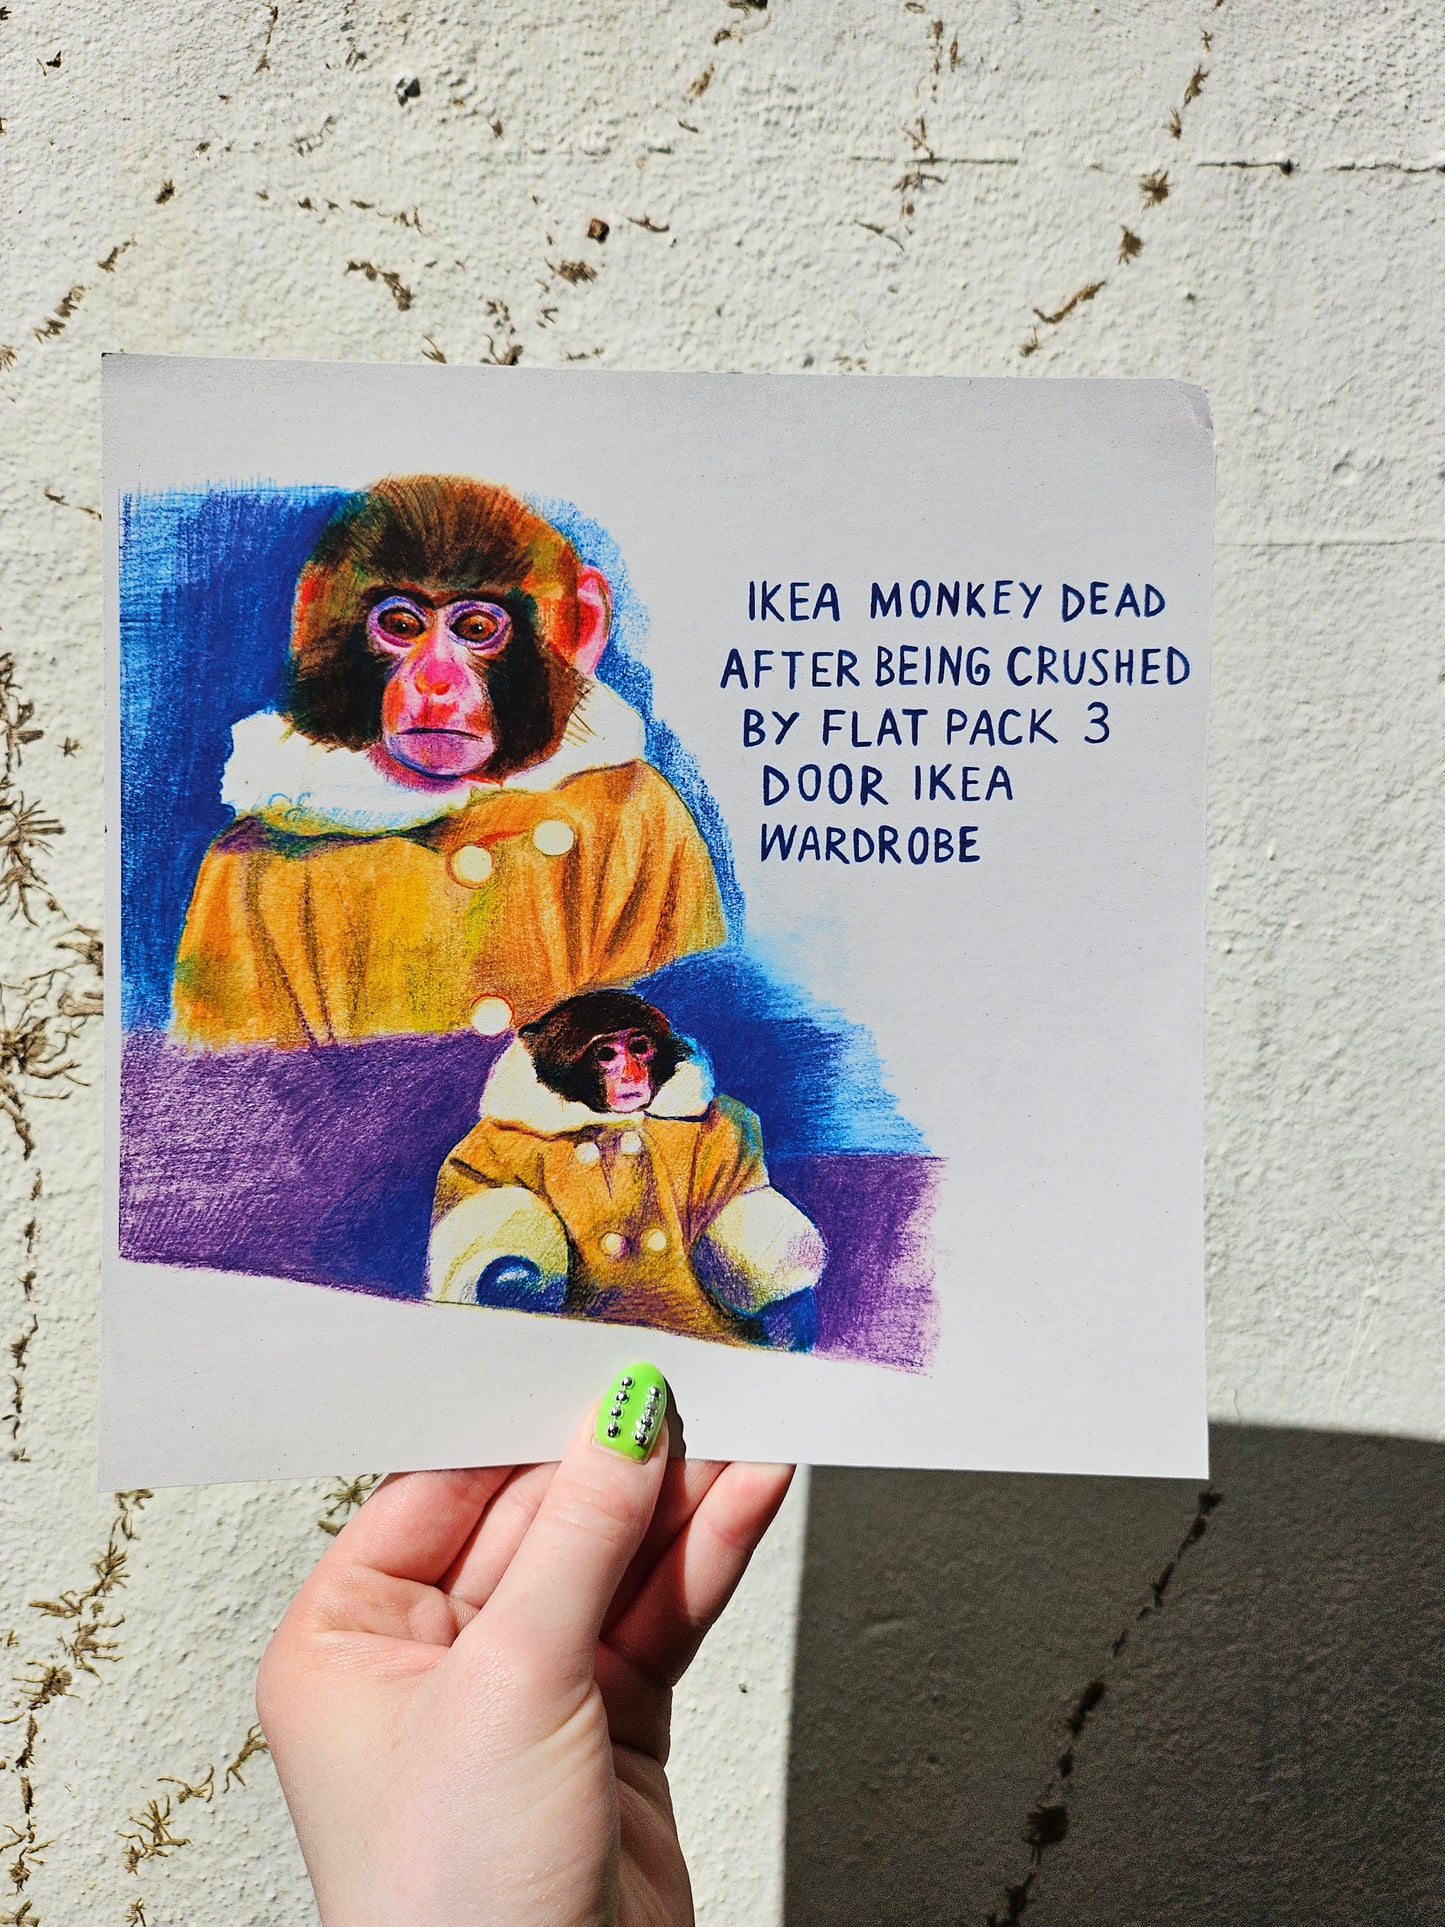 IKEA MONKEY DEAD
AFTER BEING CRUSHED
BY FLAT PACK 3
DOOR IKEA
WARDROBE